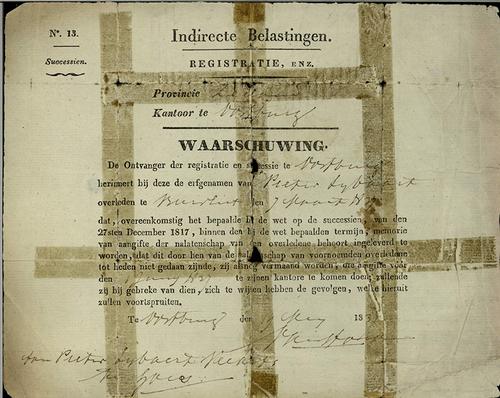 N°. 13.
Successien.
Indirecte Belastingen.
REGISTRATIE, ENZ.
Provincie
Kantoor te Oostburg
WAARSCHUWING.
De Ontvanger der registratie en successie te Oostburg
herinnert bij deze de erfgenamen van Pieter Lybaert
overleden te den 7 Maart
dat, overeenkomstig het bepaalde bij de wet op de successien, van den
27sten December 1817, binnen den bij de wet bepaalden termijn, memorie
van aangifte der nalatenschap van den overledene behoort ingeleverd te
worden, dat dit door hen van de nalatenschap van voornoemden overledene
tot heden niet gedaan zijnde, zij alsnog vermaand worden, die aangifte vóór
den te zijnen kantore te komen doen, zullende
zij bij gebreke van dien, zich te wijten hebben de gevolgen, welke hieruit
zullen voortspruiten.
Te Oostburg den Mey 183
Aan Pieter Lybaert